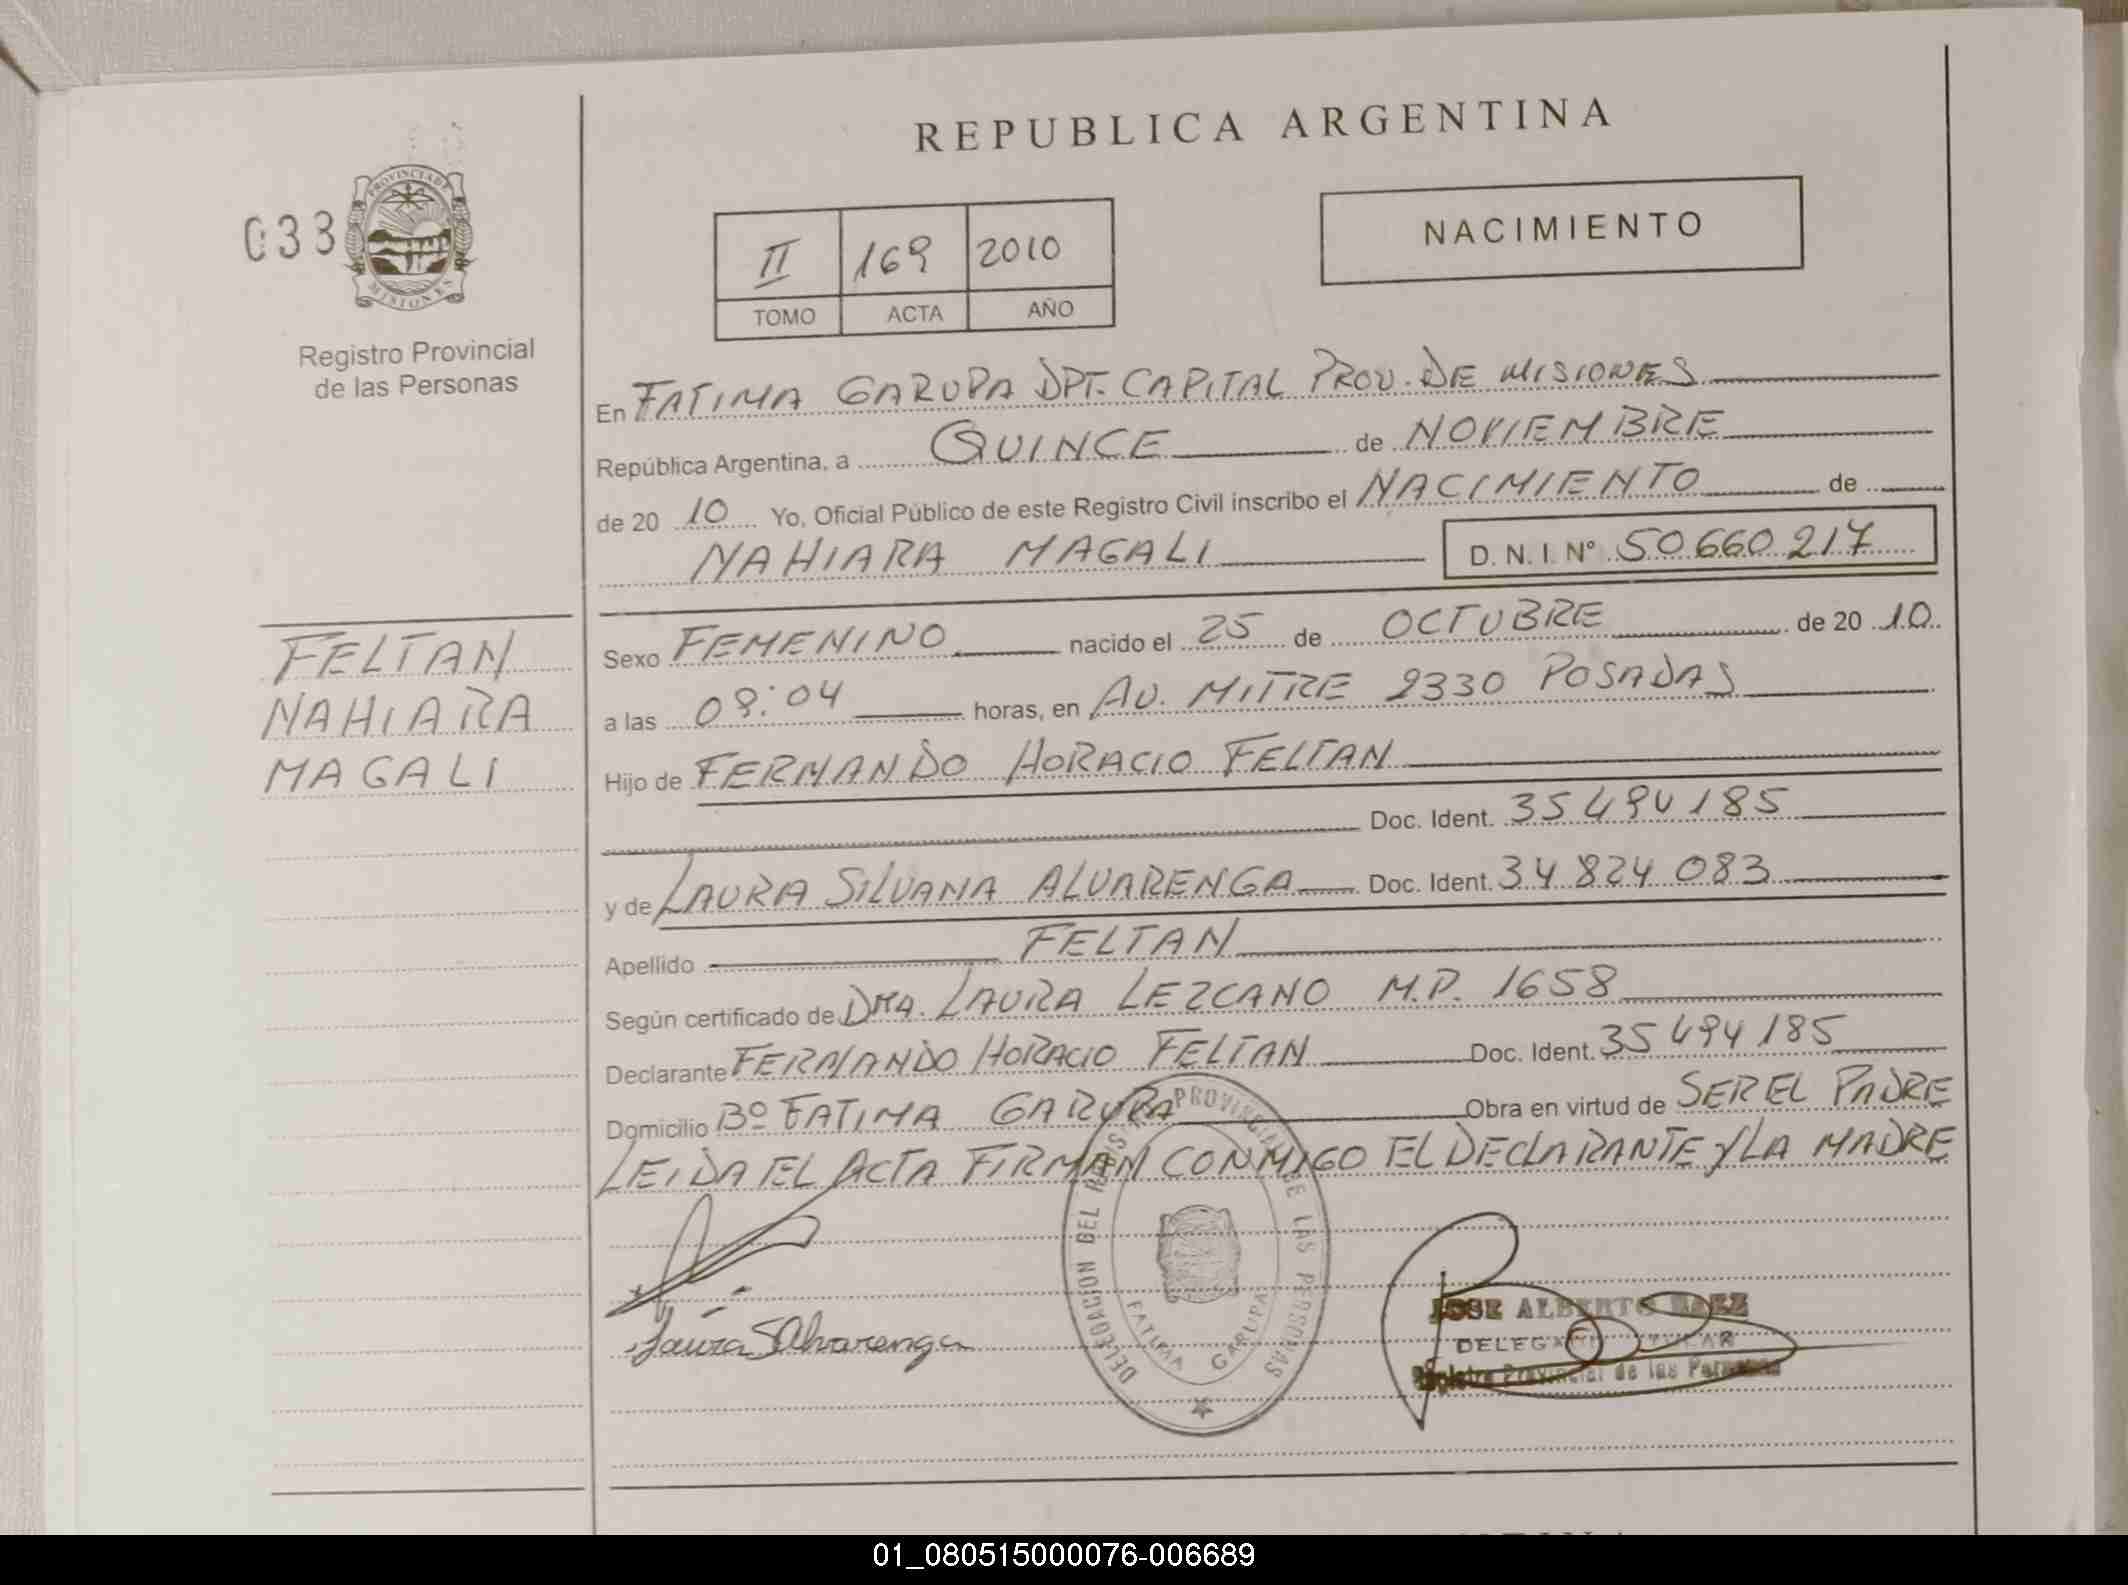 REPUBLICA ARGENTINA
033
PROVINCIA DE
MISIONES
Registro Provincial
de las Personas
II 169 2010
TOMO ACTA AÑO
NACIMIENTO
En FATIMA GARUPA DPT. CAPITAL PROV. DE MISIONES
República Argentina, a QUINCE de NOVIEMBRE
de 20 10 Yo, Oficial Público de este Registro Civil inscribo el NACIMIENTO de
NAHIARA MAGALI D. N. I. Nº 50 660 217
FELTAN
NAHIARA
MAGALI
Sexo FEMENINO nacido el 25 de OCTUBRE de 20 10
a las 08:04 horas, en AV. MITRE 2330 POSADAS
Hijo de FERNANDO HORACIO FELTAN
Doc. Ident. 35 494 185
y de LAURA SILVANA ALVARENGA Doc. Ident. 34 824 083
Apellido FELTAN
Según certificado de DRA. LAURA LEZCANO M.P. 1658
Declarante FERNANDO HORACIO FELTAN Doc. Ident. 35 494 185
Domicilio Bº FATIMA GARUPA Obra en virtud de SER EL PADRE
LEIDA EL ACTA FIRMAN CONMIGO EL DECLARANTE y LA MADRE
Laura S Alvarenga
DELEGACION DEL REGIS PROVINCIAL DE LAS PERSONAS
FATIMA GARUPA
JOSE ALBERTO BAEZ
DELEGADO TITULAR
Registro Provincial de las Personas
01_080515000076-006689